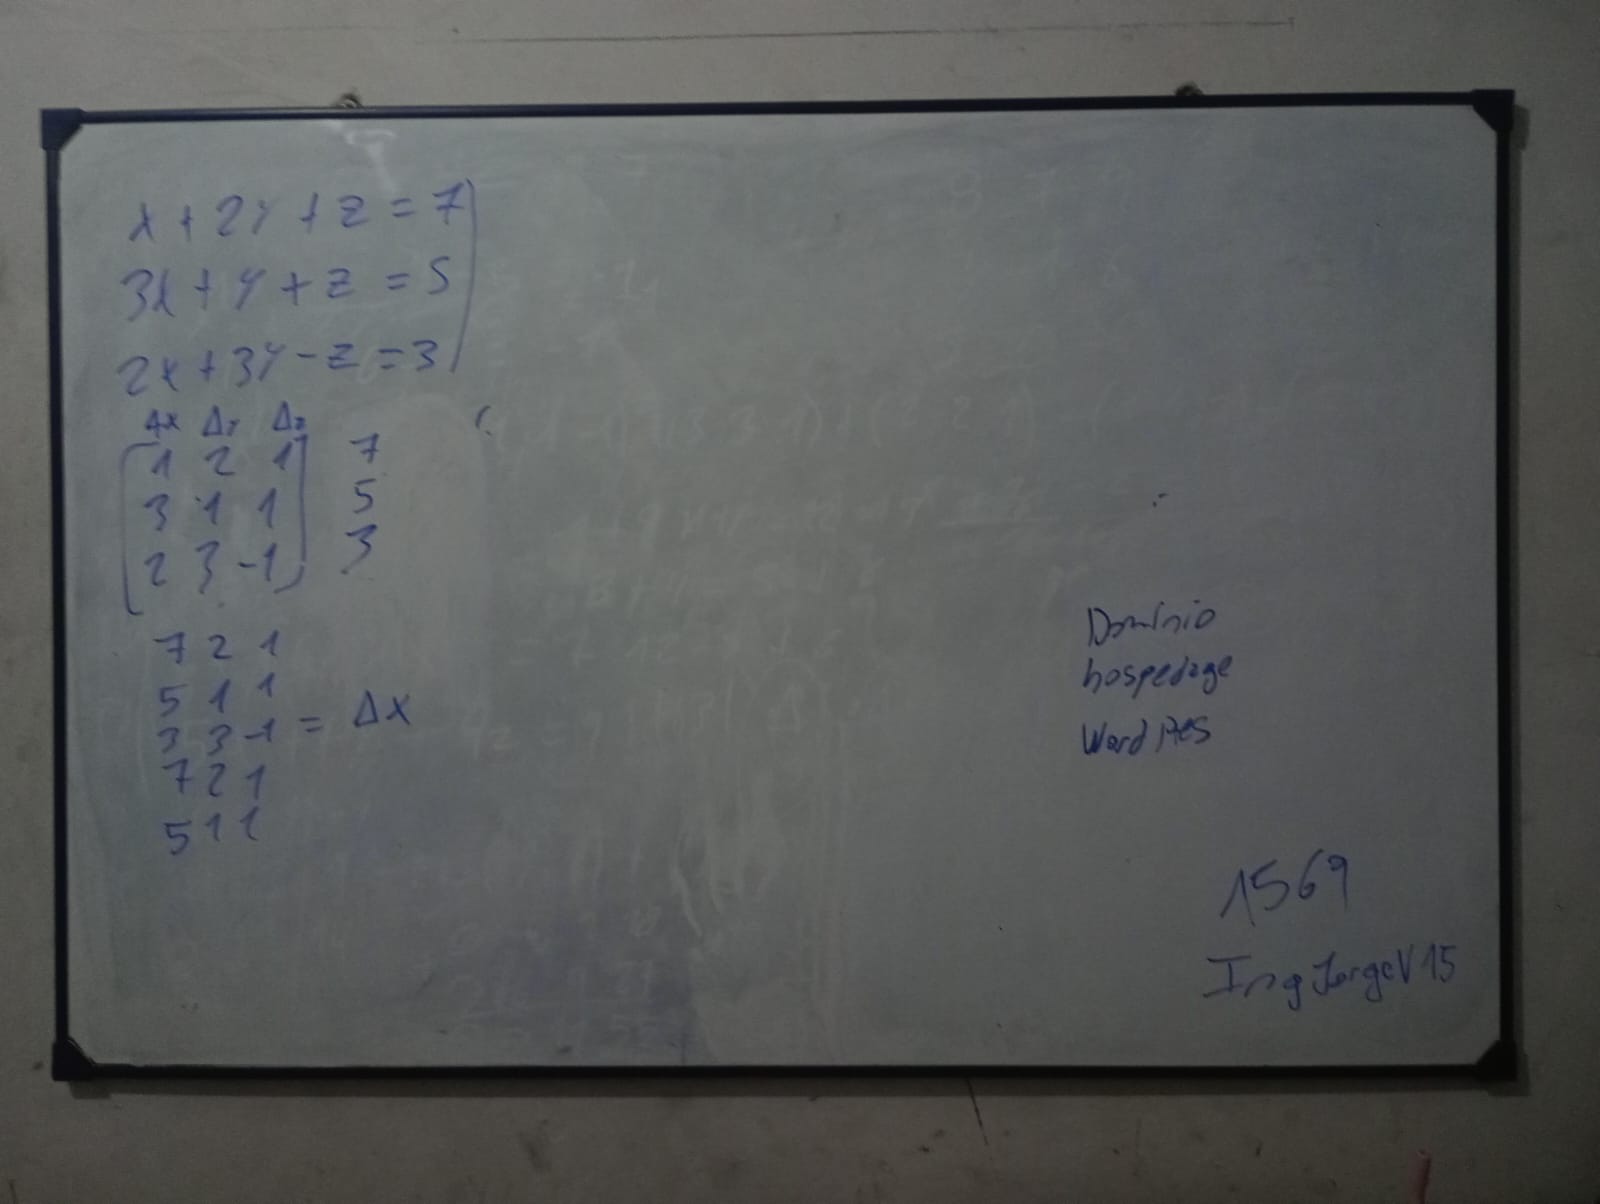 x + 2y + z = 7
3x + y + z = 5
2x + 3y - z = 3
Δx Δy Δz
1 2 1 7
3 1 1 5
2 3 -1 3
7 2 1
5 1 1
3 3 -1 = Δx
7 2 1
5 1 1
Domínio
hospedage
Word
1569
Ing Jorge V 15